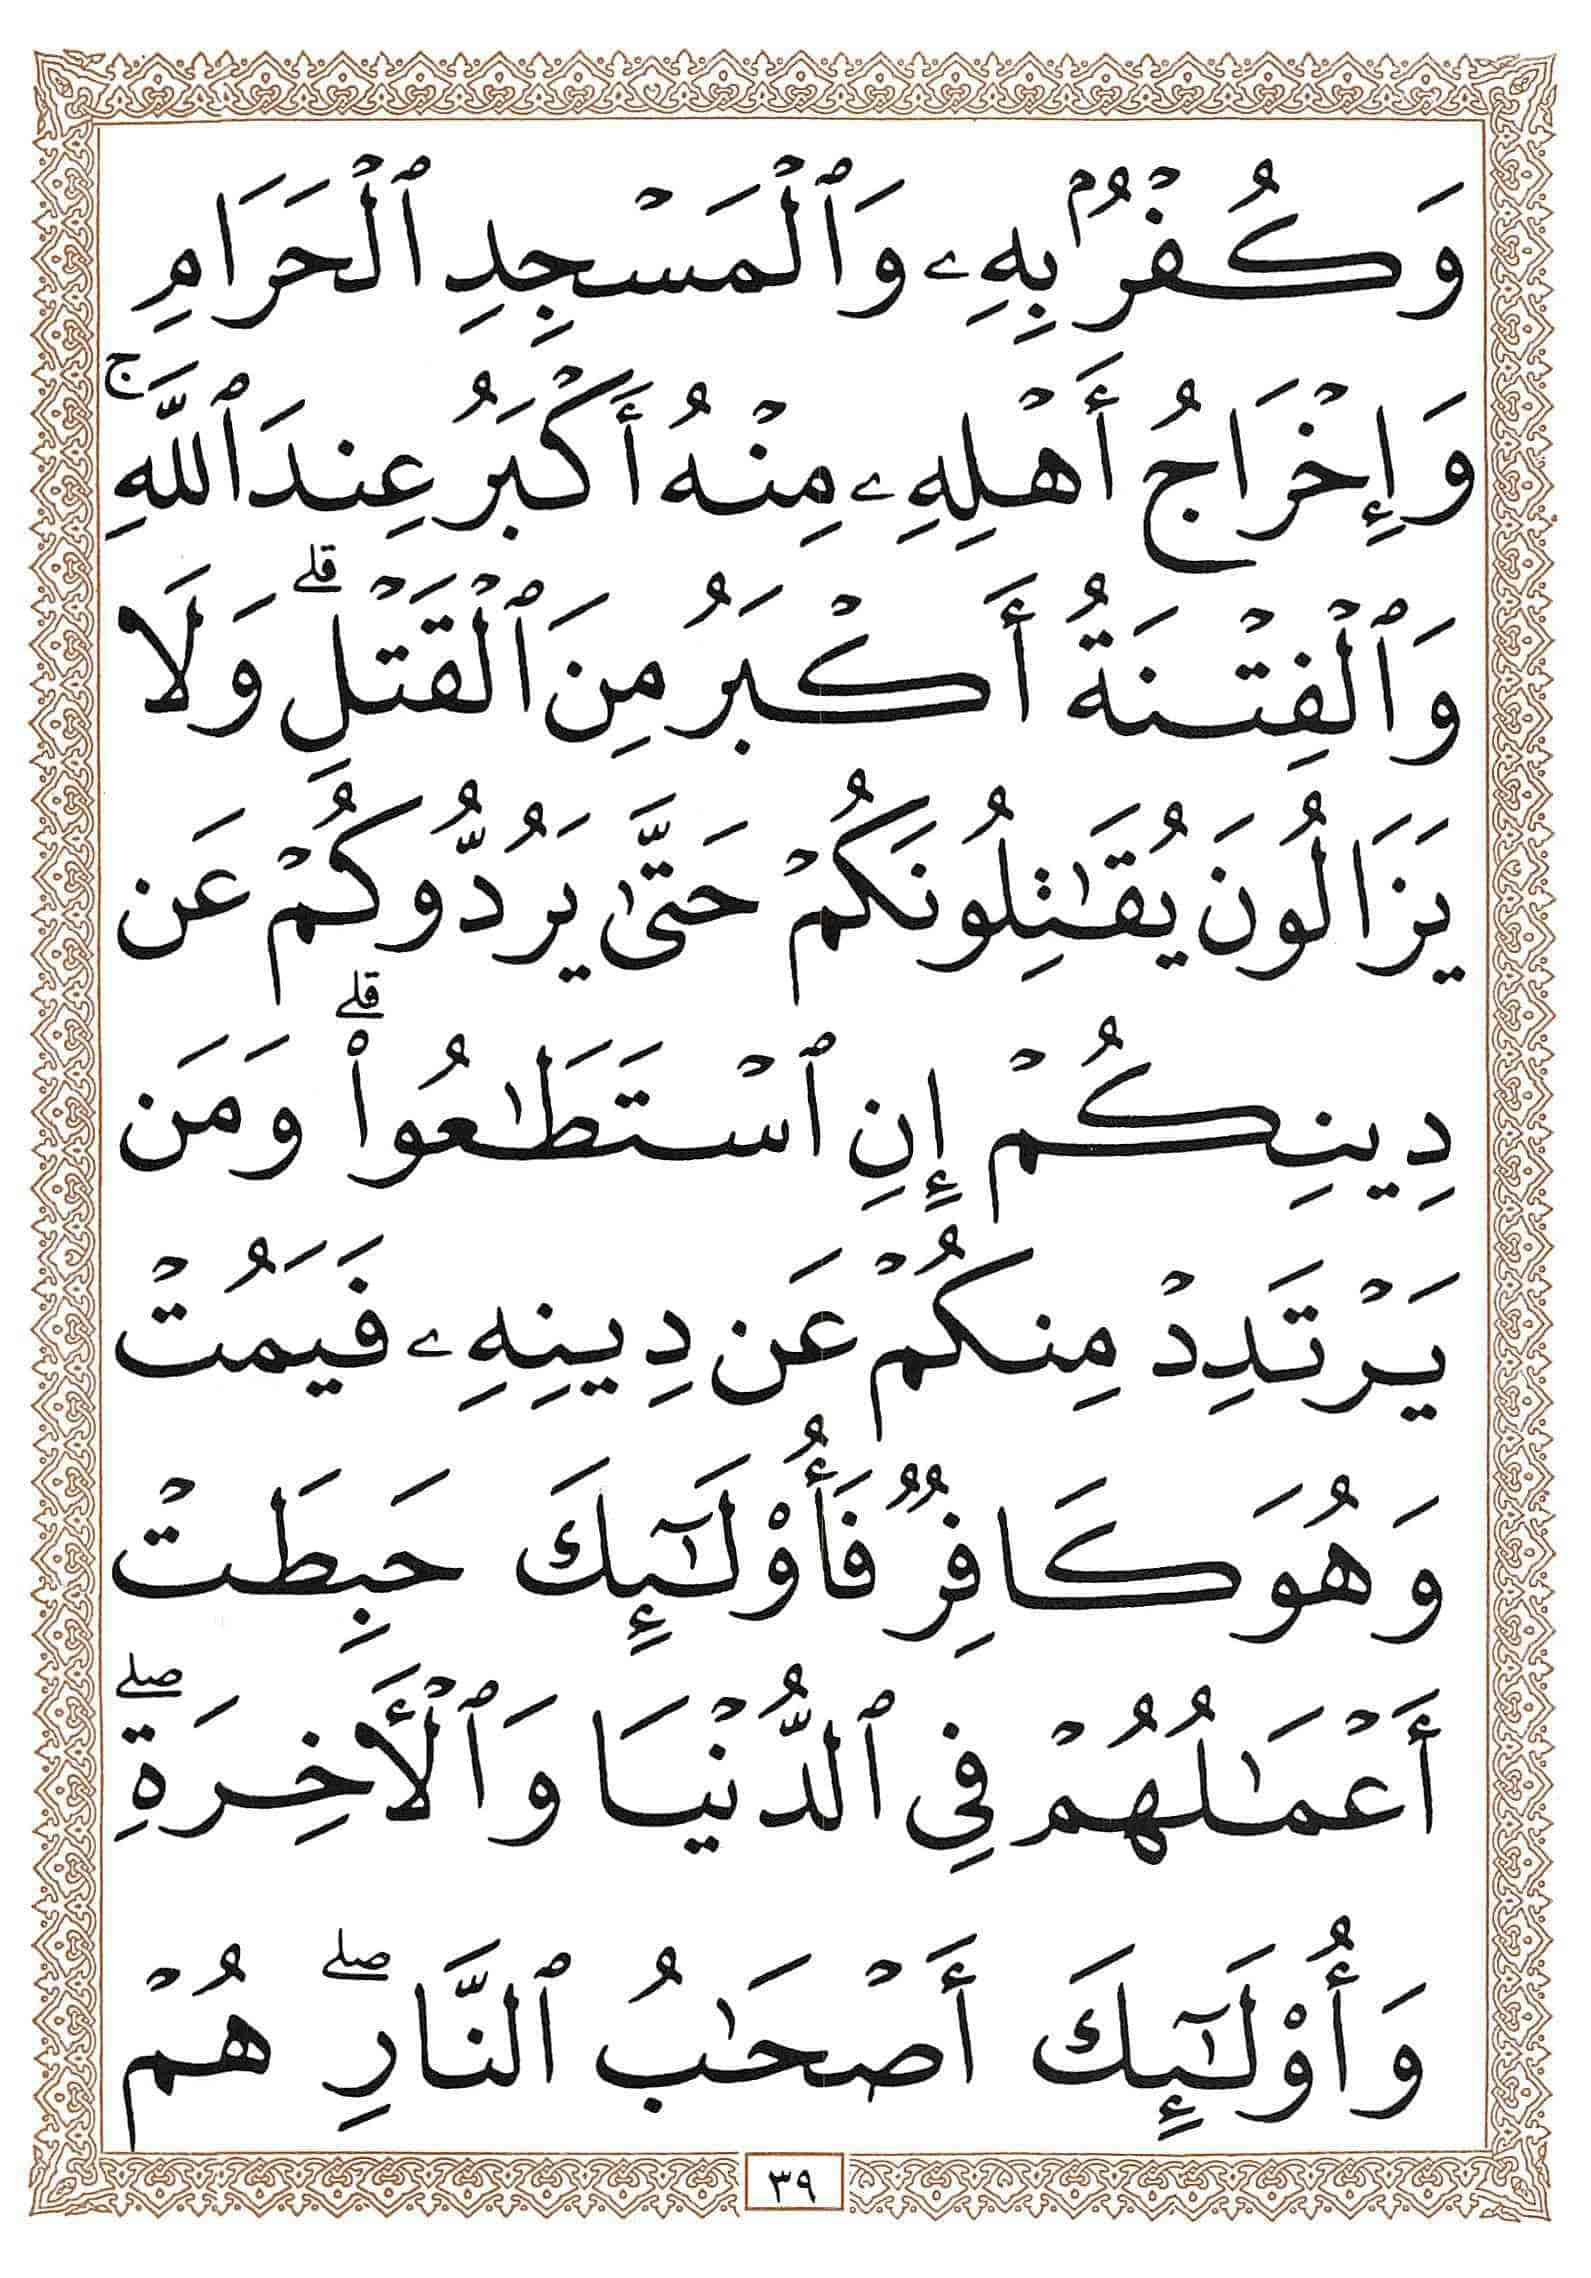 وَكُفْرُۢ بِهِۦ وَٱلْمَسْجِدِ ٱلْحَرَامِ
وَإِخْرَاجُ أَهْلِهِۦ مِنْهُ أَكْبَرُ عِندَ ٱللَّهِ ۚ
وَٱلْفِتْنَةُ أَكْبَرُ مِنَ ٱلْقَتْلِ ۗ وَلَا
يَزَالُونَ يُقَٰتِلُونَكُمْ حَتَّىٰ يَرُدُّوكُمْ عَن
دِينِكُمْ إِنِ ٱسْتَطَٰعُوا۟ ۗ وَمَن
يَرْتَدِدْ مِنكُمْ عَن دِينِهِۦ فَيَمُتْ
وَهُوَ كَافِرٌ فَأُو۟لَٰٓئِكَ حَبِطَتْ
أَعْمَٰلُهُمْ فِى ٱلدُّنْيَا وَٱلْأَخِرَةِ ۖ
وَأُو۟لَٰٓئِكَ أَصْحَٰبُ ٱلنَّارِ ۖ هُمْ
٣٩